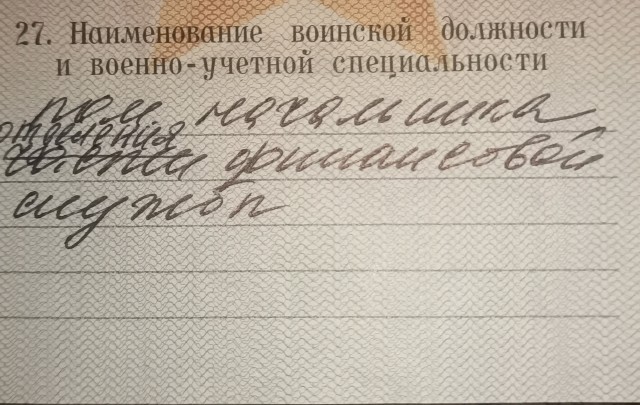 27. Наименование воинской должности
и военно-учетной специальности
пом начальника
отделения
финансовой
службы